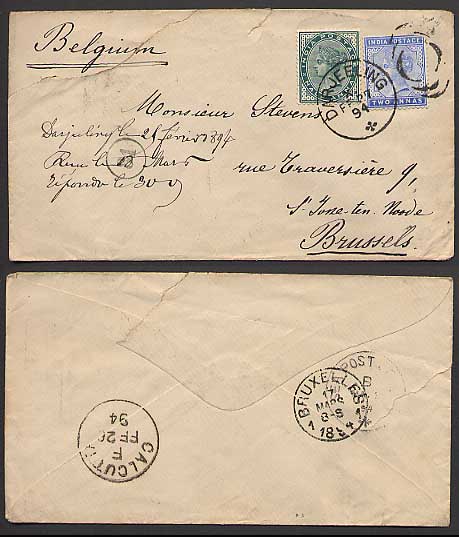 Belgium
INDIA POSTAGE
INDIA POSTAGE
TWO ANNAS
DARJEELING
94
Monsieur Stevens
Darjeeling le 25 février 1894
Reçu le 18 Mars
Répondu le 30
rue Traversière 9,
St Josse-ten-Noode
Brussels.
POST
B
BRUXELLES
17
MARS
8-S
1 1894 1
CALCUTTA
F
FE 26
94